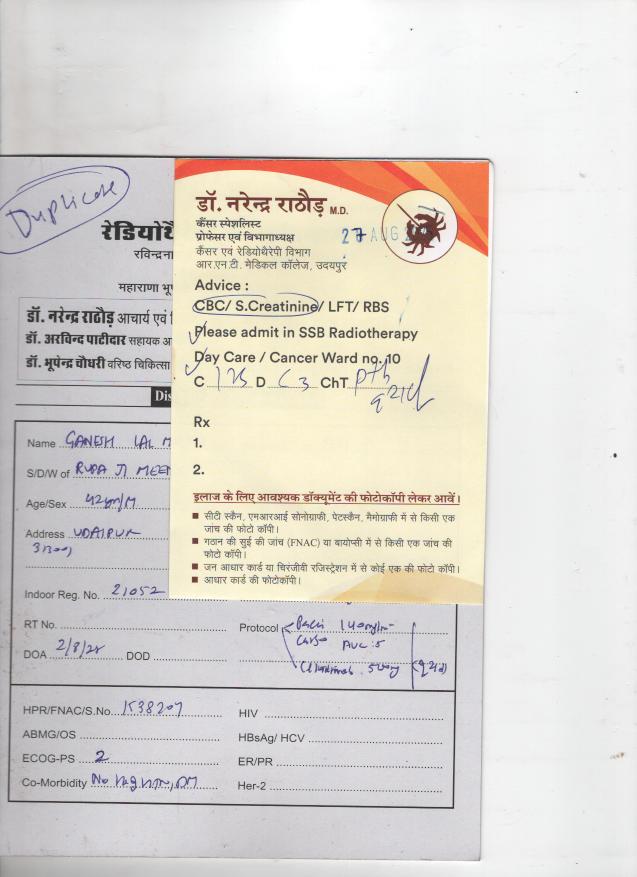 Duplicate
रेडियोथै
रविन्द्रना
महाराणा भूप
डॉ. नरेन्द्र राठौड़ आचार्य एवं
डॉ. अरविन्द पाटीदार सहायक आ
डॉ. भूपेन्द्र चौधरी वरिष्ठ चिकित्सा
Dis
डॉ. नरेन्द्र राठौड़ M.D.
कैंसर स्पेशलिस्ट
प्रोफेसर एवं विभागाध्यक्ष
कैंसर एवं रेडियोथैरेपी विभाग
आर.एन.टी. मेडिकल कॉलेज, उदयपुर
27 AUG
Advice :
CBC/ S.Creatinine/ LFT/ RBS
Please admit in SSB Radiotherapy
Day Care / Cancer Ward no. 10
C D C3 ChT
Rx
1.
2.
इलाज के लिए आवश्यक डॉक्यूमेंट की फोटोकॉपी लेकर आवें।
सीटी स्कैन, एमआरआई सोनोग्राफी, पेटस्कैन, मैमोग्राफी में से किसी एक
जांच की फोटो कॉपी।
गठान की सुई की जांच (FNAC) या बायोप्सी में से किसी एक जांच की
फोटो कॉपी।
जन आधार कार्ड या चिरंजीवी रजिस्ट्रेशन में से कोई एक की फोटो कॉपी।
आधार कार्ड की फोटोकॉपी।
Name GANESH LAL M
S/D/W of RUPA JI MEE
Age/Sex 42yr/M
Address UDAIPUR
313001
Indoor Reg. No. 21052
RT No.
DOA 2/8/24 DOD
Protocol Pacli 140mg/m
Carbo AUC 5
500mg
HPR/FNAC/S.No. K38207
ABMG/OS
ECOG-PS 2
Co-Morbidity No DM
HIV
HBsAg/ HCV
ER/PR
Her-2